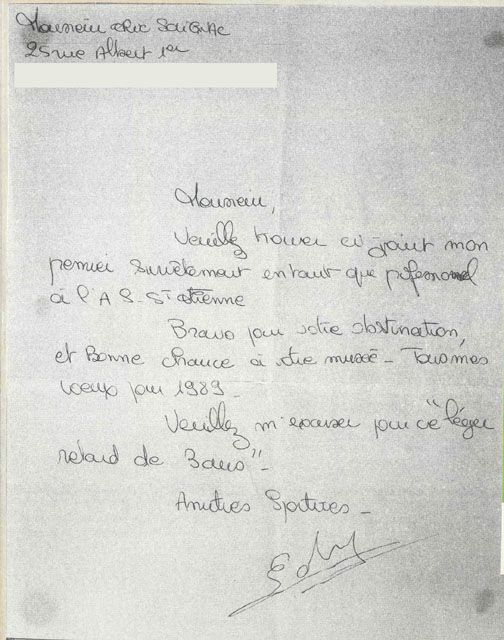 Monsieur eric SOIGNAC
25 rue Albert 1er
Monsieur,
Veuillez trouver ci joint mon
premier survêtement en tant que professionnel
à l'A S-St etienne
Bravo pour votre obstination,
et Bonne chance à votre musée - Tous mes
voeux pour 1989 -
Veuillez m'excuser pour ce "léger
retard de 3 ans" -
Amitiés Sportives -